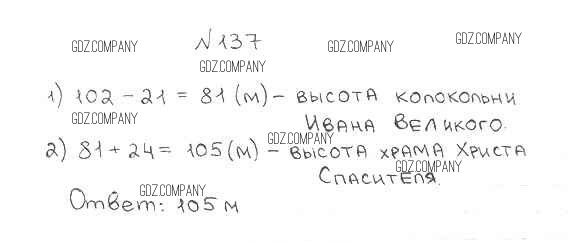 GDZ.COMPANY №137 GDZ.COMPANY GDZ.COMPANY
GDZ.COMPANY
1) 102 - 21 = 81 (м) - высота колокольни
GDZ.COMPANY Ивана Великого.
GDZ.COMPANY
2) 81 + 24 = 105 (м) - высота храма Христа
GDZ.COMPANY
Спасителя.
GDZ.COMPANY
Ответ: 105 м